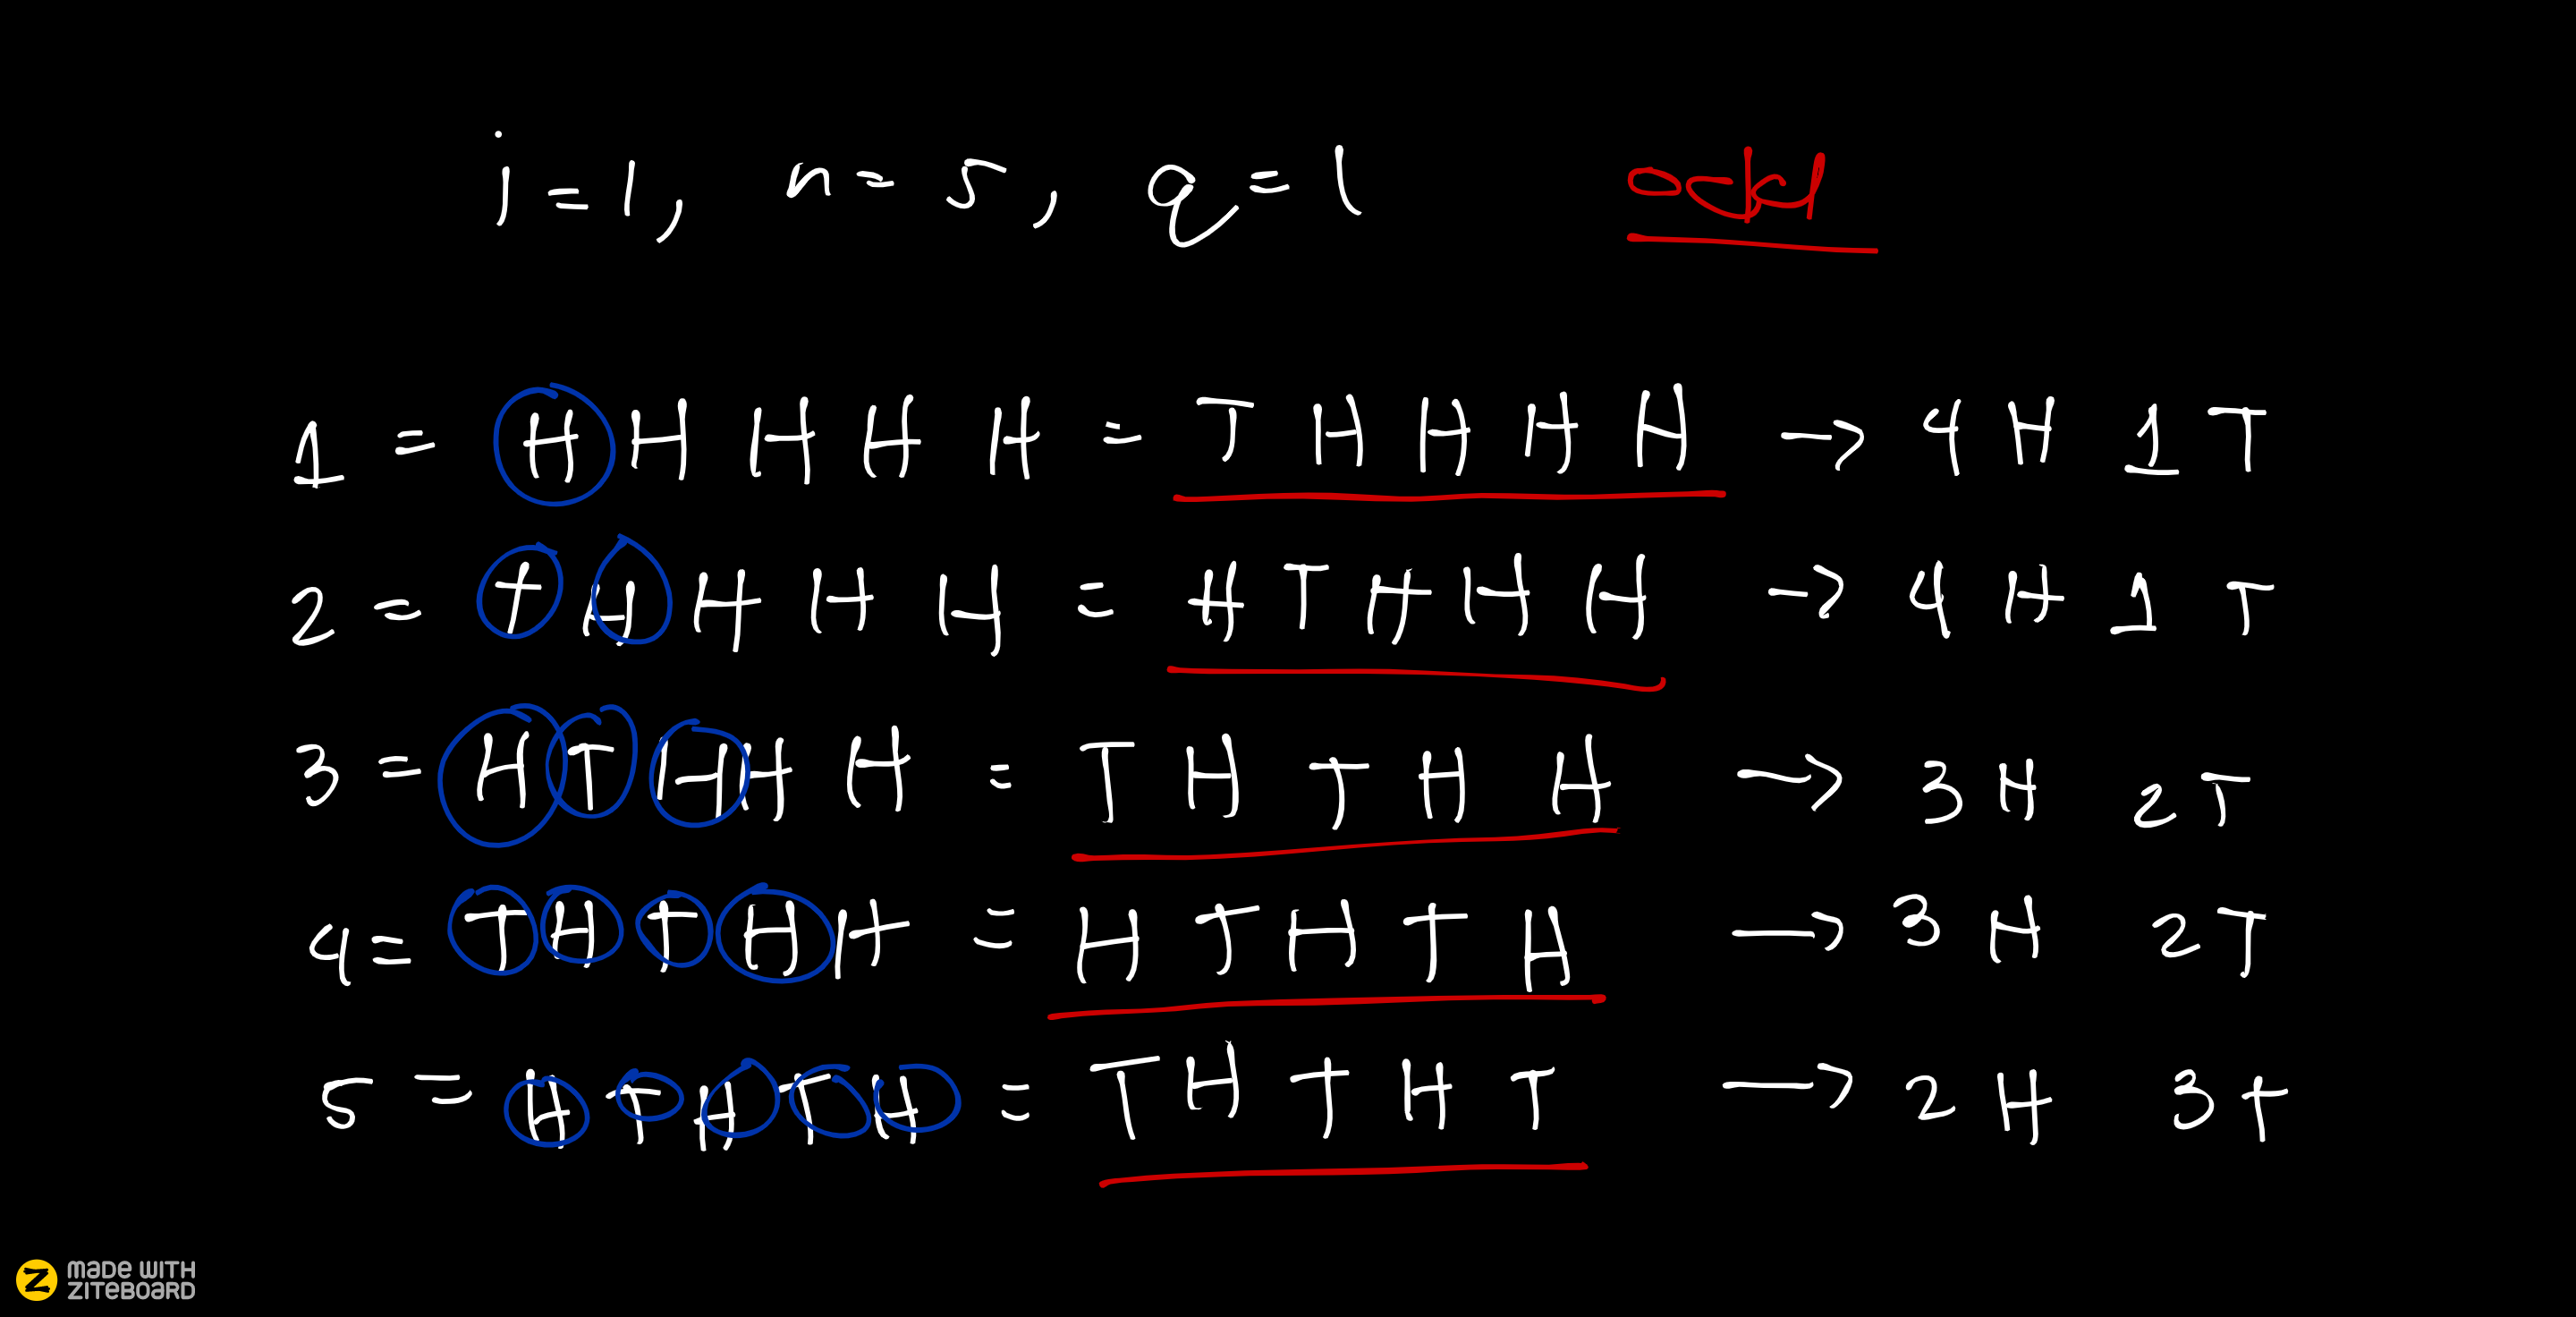 i=1, n=5, q=1 odd
1 = H H H H H = T H H H H → 4 H 1 T
2 = T H H H H = H T H H H → 4 H 1 T
3 = H T H H H = T H T H H → 3 H 2 T
4 = T H T H H = H T H T H → 3 H 2 T
5 = H T H T H = T H T H T → 2 H 3 T
MADE WITH
ZITEBOARD